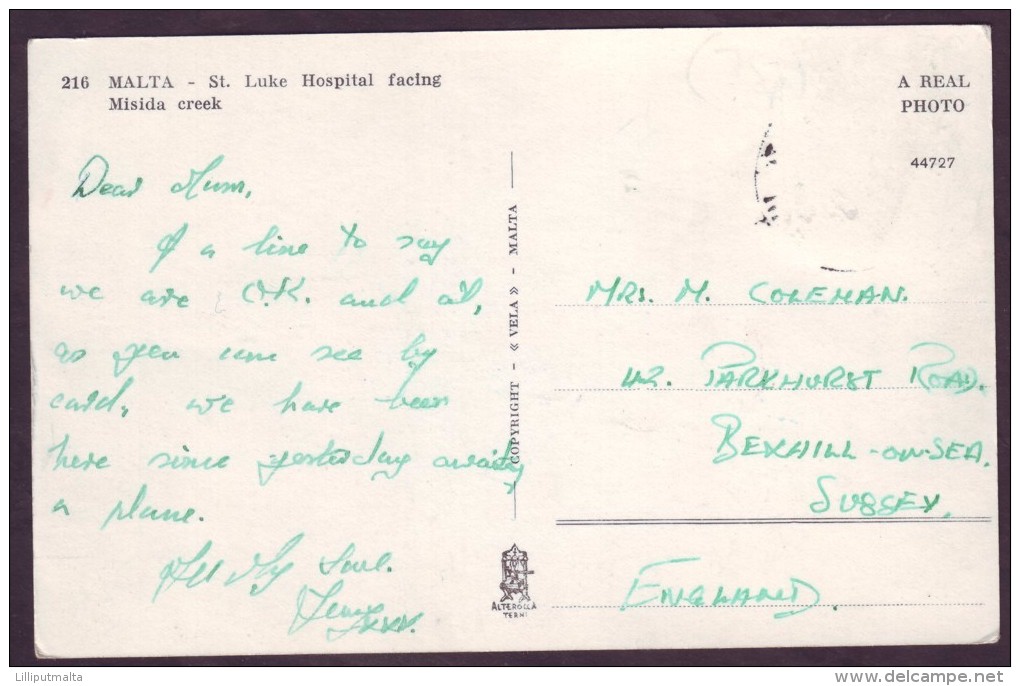 216 MALTA - St. Luke Hospital facing
Misida creek
A REAL
PHOTO
44727
Dear Mum,
a line to say
we are O.K. and all,
as you can see by
card, we have been
here since yesterday awaiting
a plane.
All My Love.
xxx.
COPYRIGHT - « VELA » - MALTA
ALTEROCCA
TERNI
MRS. M. COLEMAN.
42. PARKHURST ROAD.
BEXHILL-ON-SEA.
SUSSEX.
ENGLAND.
Lilliputmalta
www.delcampe.net